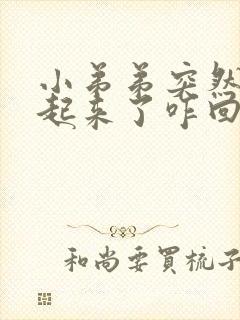 小弟弟突然
起来了咋回
和尚要買梳子